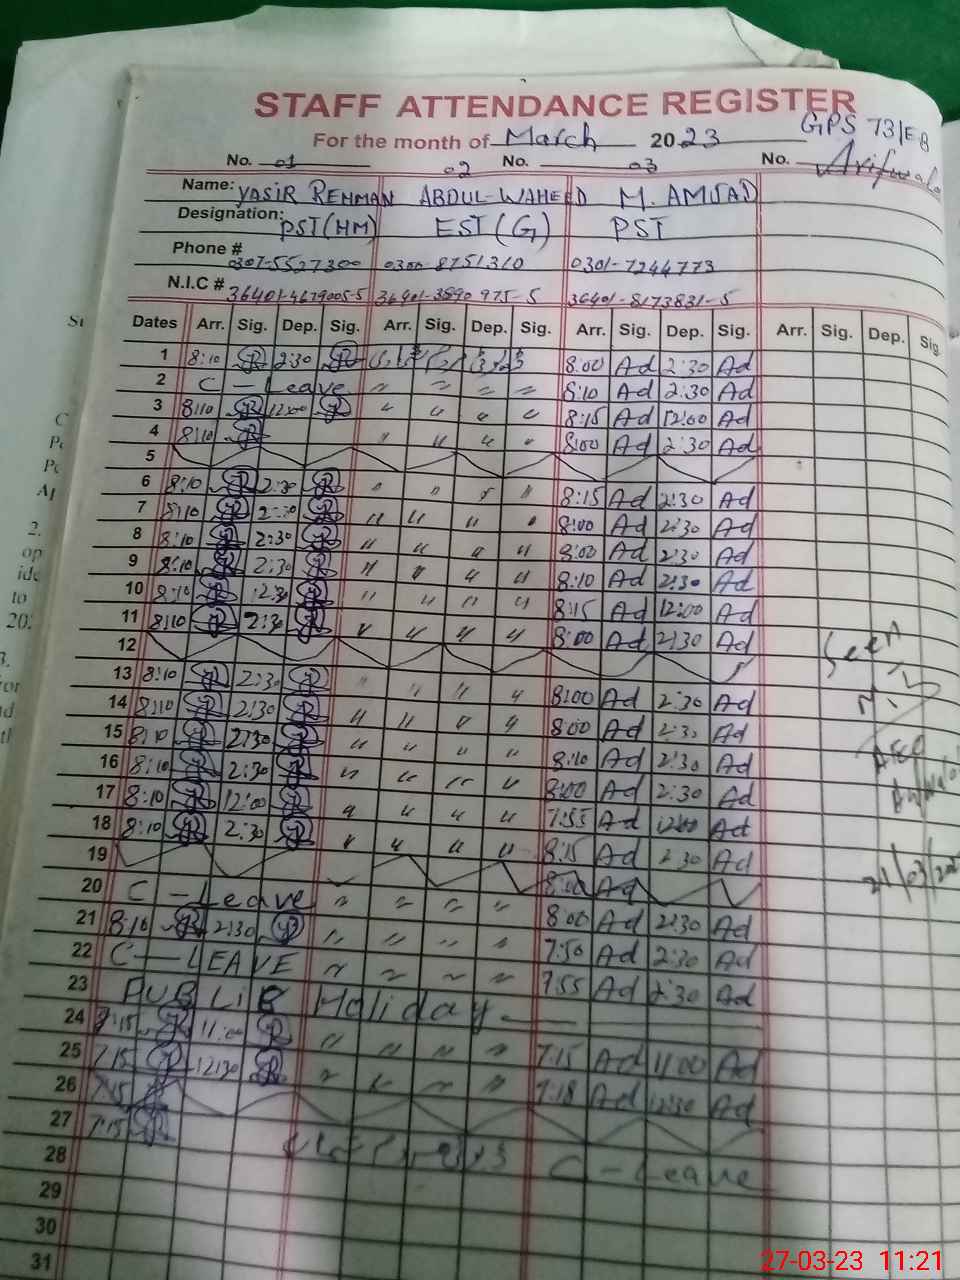 STAFF ATTENDANCE REGISTER
GPS 73/EB
For the month of March 2023
Arifwala
No. 01 No. 02 03 No.
Name: YASIR REHMAN ABDUL-WAHEED M. AMJAD
Designation: PST(HM) EST(G) PST
Phone # 0307-5527300 0300-8751310 0301-7244773
N.I.C # 36401-4679005-5 36401-3890975-5 36401-8173831-5
Dates Arr. Sig. Dep. Sig. Arr. Sig. Dep. Sig. Arr. Sig. Dep. Sig. Arr. Sig. Dep. Sig.
1 8:10 2:30 8:00 Ad 2:30 Ad
2 C - Leave 〃 〃 〃 〃 8:10 Ad 2:30 Ad
3 8:10 12:00 〃 〃 〃 〃 8:15 Ad 12:00 Ad
4 8:10 〃 〃 〃 〃 8:00 Ad 2:30 Ad
5
6 8:10 2:30 〃 〃 〃 〃 8:15 Ad 2:30 Ad
7 8:10 2:30 〃 〃 〃 〃 8:00 Ad 2:30 Ad
8 8:10 2:30 〃 〃 〃 〃 8:00 Ad 2:30 Ad
9 8:10 2:30 〃 〃 〃 〃 8:10 Ad 2:30 Ad
10 8:10 12:30 〃 〃 〃 〃 8:15 Ad 12:00 Ad
11 8:10 2:30 〃 〃 〃 〃 8:00 Ad 2:30 Ad
12
13 8:10 2:30 〃 〃 〃 〃 8:00 Ad 2:30 Ad
14 8:10 2:30 〃 〃 〃 〃 8:00 Ad 2:30 Ad
15 8:10 2:30 〃 〃 〃 〃 8:10 Ad 2:30 Ad
16 8:10 2:30 〃 〃 〃 〃 8:00 Ad 2:30 Ad
17 8:10 12:00 〃 〃 〃 〃 7:55 Ad 12:00 Ad
18 8:10 2:30 〃 〃 〃 〃 8:15 Ad 2:30 Ad
19 8:00 Ad
20 C - Leave 〃 〃 〃 〃 8:00 Ad 2:30 Ad
21 8:10 2:30 〃 〃 〃 〃 7:50 Ad 2:30 Ad
22 C - LEAVE 〃 〃 〃 〃 7:55 Ad 2:30 Ad
23 PUBLIC Holiday
24 7:15 11:00 〃 〃 〃 〃 7:15 Ad 11:00 Ad
25 7:15 12:30 〃 〃 〃 〃 7:18 Ad 12:30 Ad
26 7:15
27 7:15 C - Leave
28
29
30
31
Seen
21/03/202
27-03-23 11:21